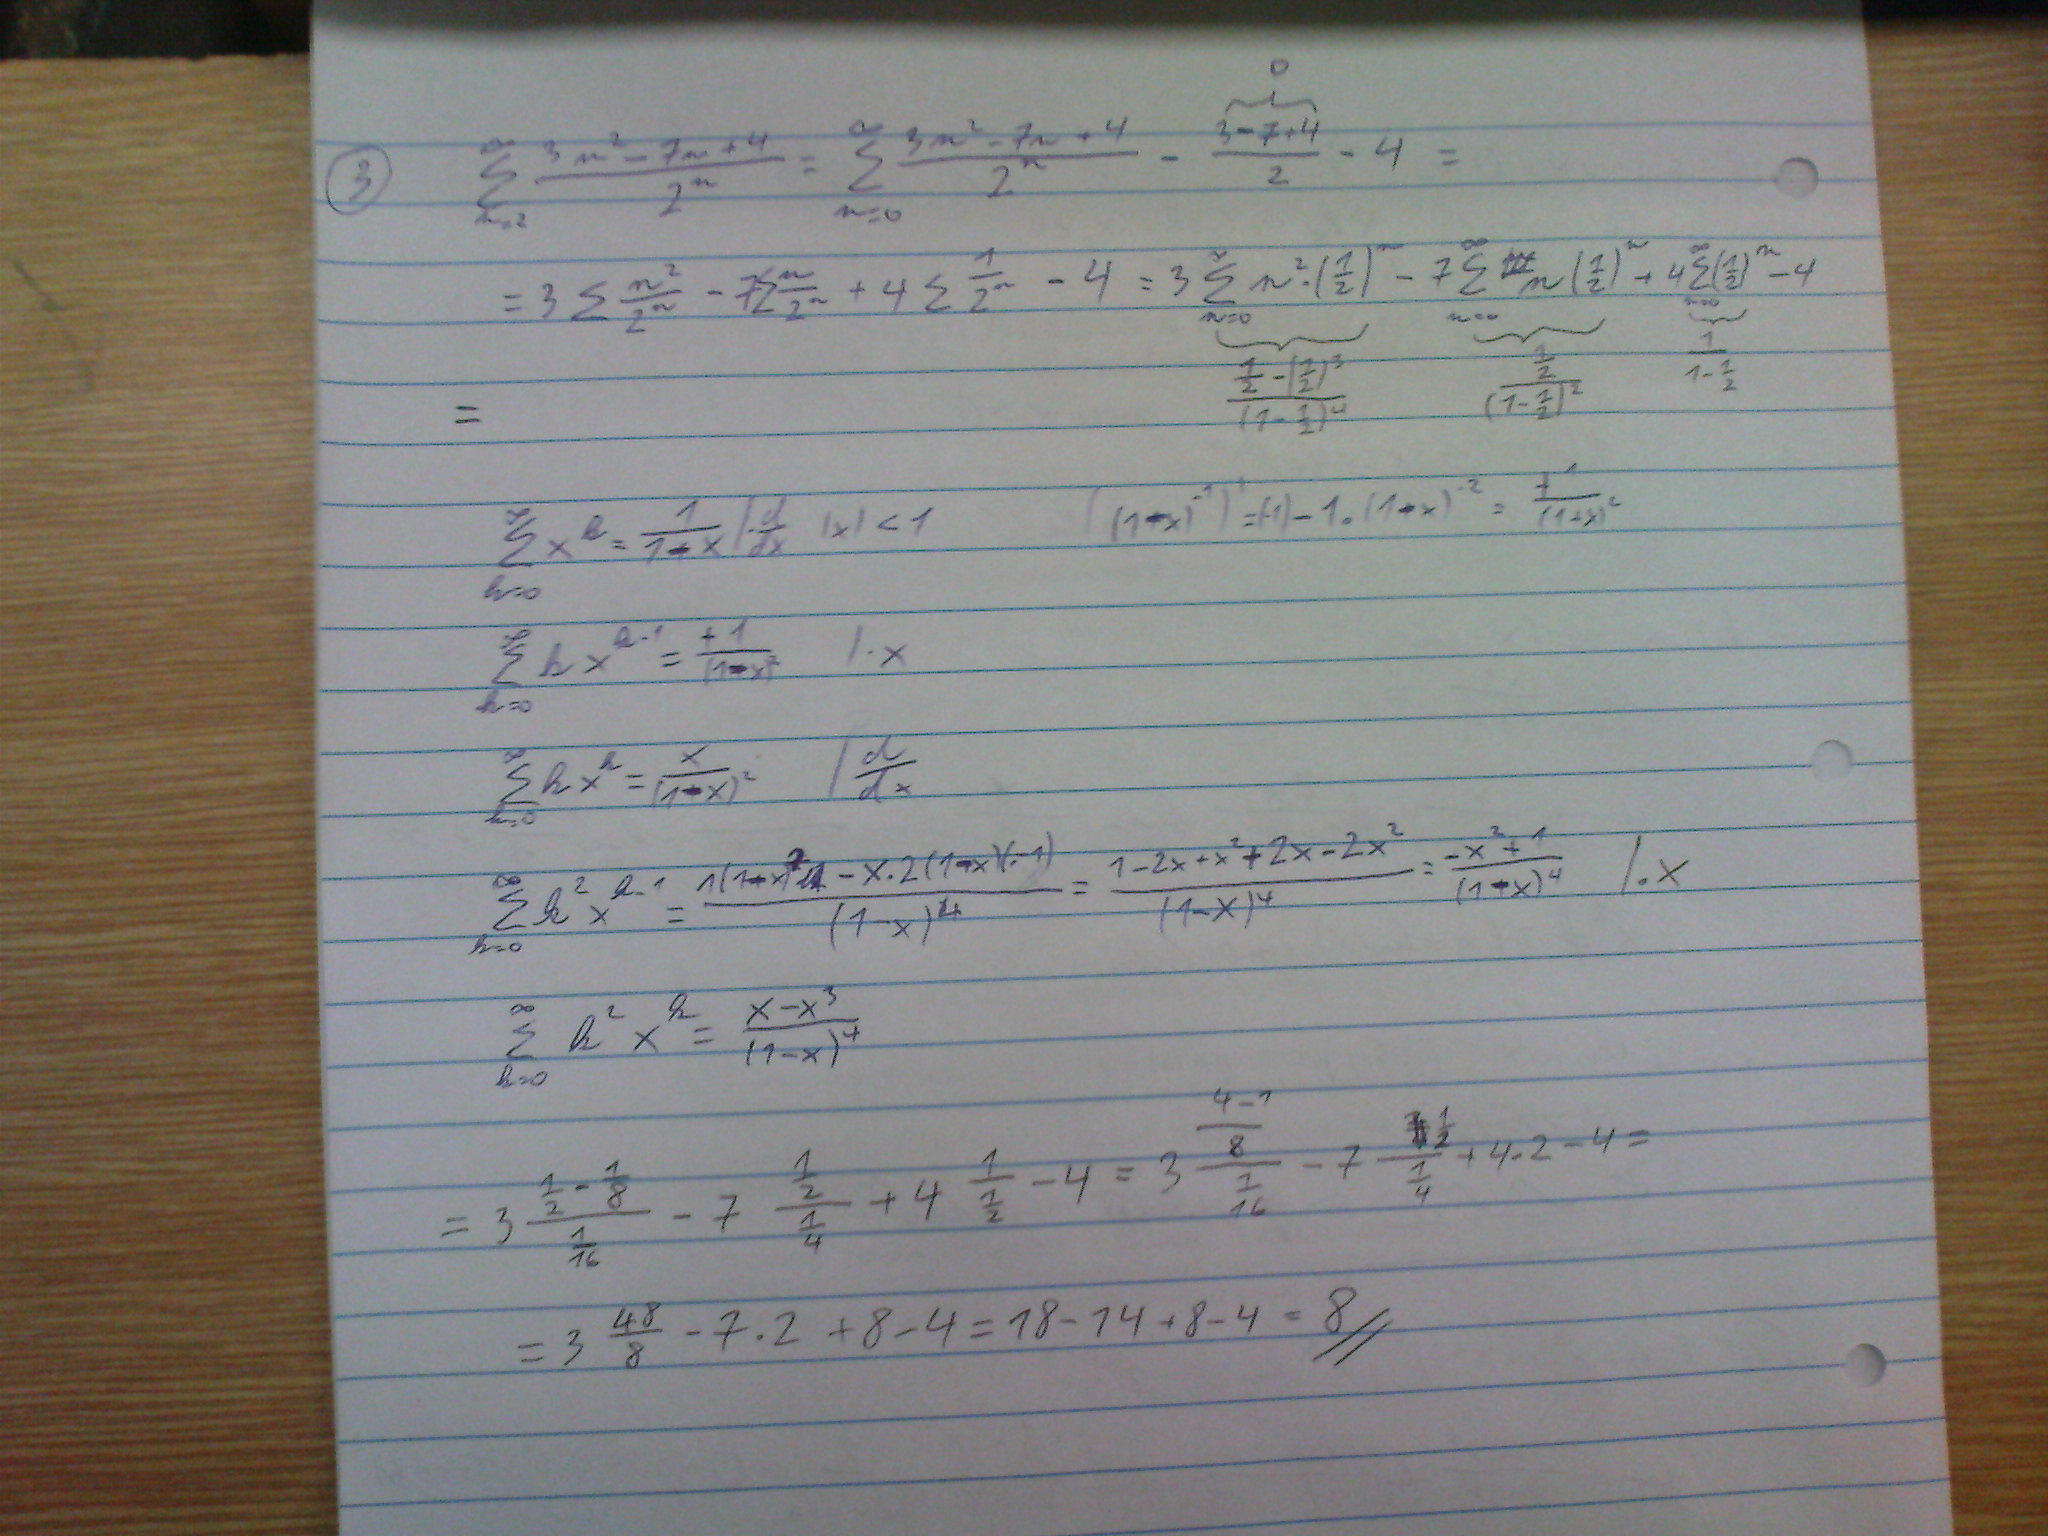 0
③ ∑_{n=2}^{∞} (3n²-7n+4)/2ⁿ = ∑_{n=0}^{∞} (3n²-7n+4)/2ⁿ - (3-7+4)/2 - 4 =
= 3 ∑ n²/2ⁿ - 7∑ n/2ⁿ + 4 ∑ 1/2ⁿ - 4 = 3 ∑_{n=0}^{∞} n²·(1/2)ⁿ - 7 ∑_{n=0}^{∞} n (1/2)ⁿ + 4 ∑_{n=0}^{∞} (1/2)ⁿ - 4
(1/2 - (1/2)³)/(1-1/2)⁴ (1/2)/(1-1/2)² 1/(1-1/2)
=
∑_{k=0}^{∞} x^k = 1/(1-x) | d/dx |x| < 1 ((1-x)^{-1})' = (-1)-1·(1-x)^{-2} = +1/(1-x)²
∑_{k=0}^{∞} k x^{k-1} = +1/(1-x)² /·x
∑_{k=0}^{∞} k x^k = x/(1-x)² | d/dx
∑_{k=0}^{∞} k² x^{k-1} = (1(1-x)² - x·2(1-x)(-1))/(1-x)⁴ = (1-2x+x²+2x-2x²)/(1-x)⁴ = (-x²+1)/(1-x)⁴ /·x
∑_{k=0}^{∞} k² x^k = (x-x³)/(1-x)⁴
= 3 (1/2 - 1/8)/(1/16) - 7 (1/2)/(1/4) + 4 1/(1/2) - 4 = 3 ((4-1)/8)/(1/16) - 7 (1/2)/(1/4) + 4·2 - 4 =
= 3 48/8 - 7·2 + 8 - 4 = 18 - 14 + 8 - 4 = 8